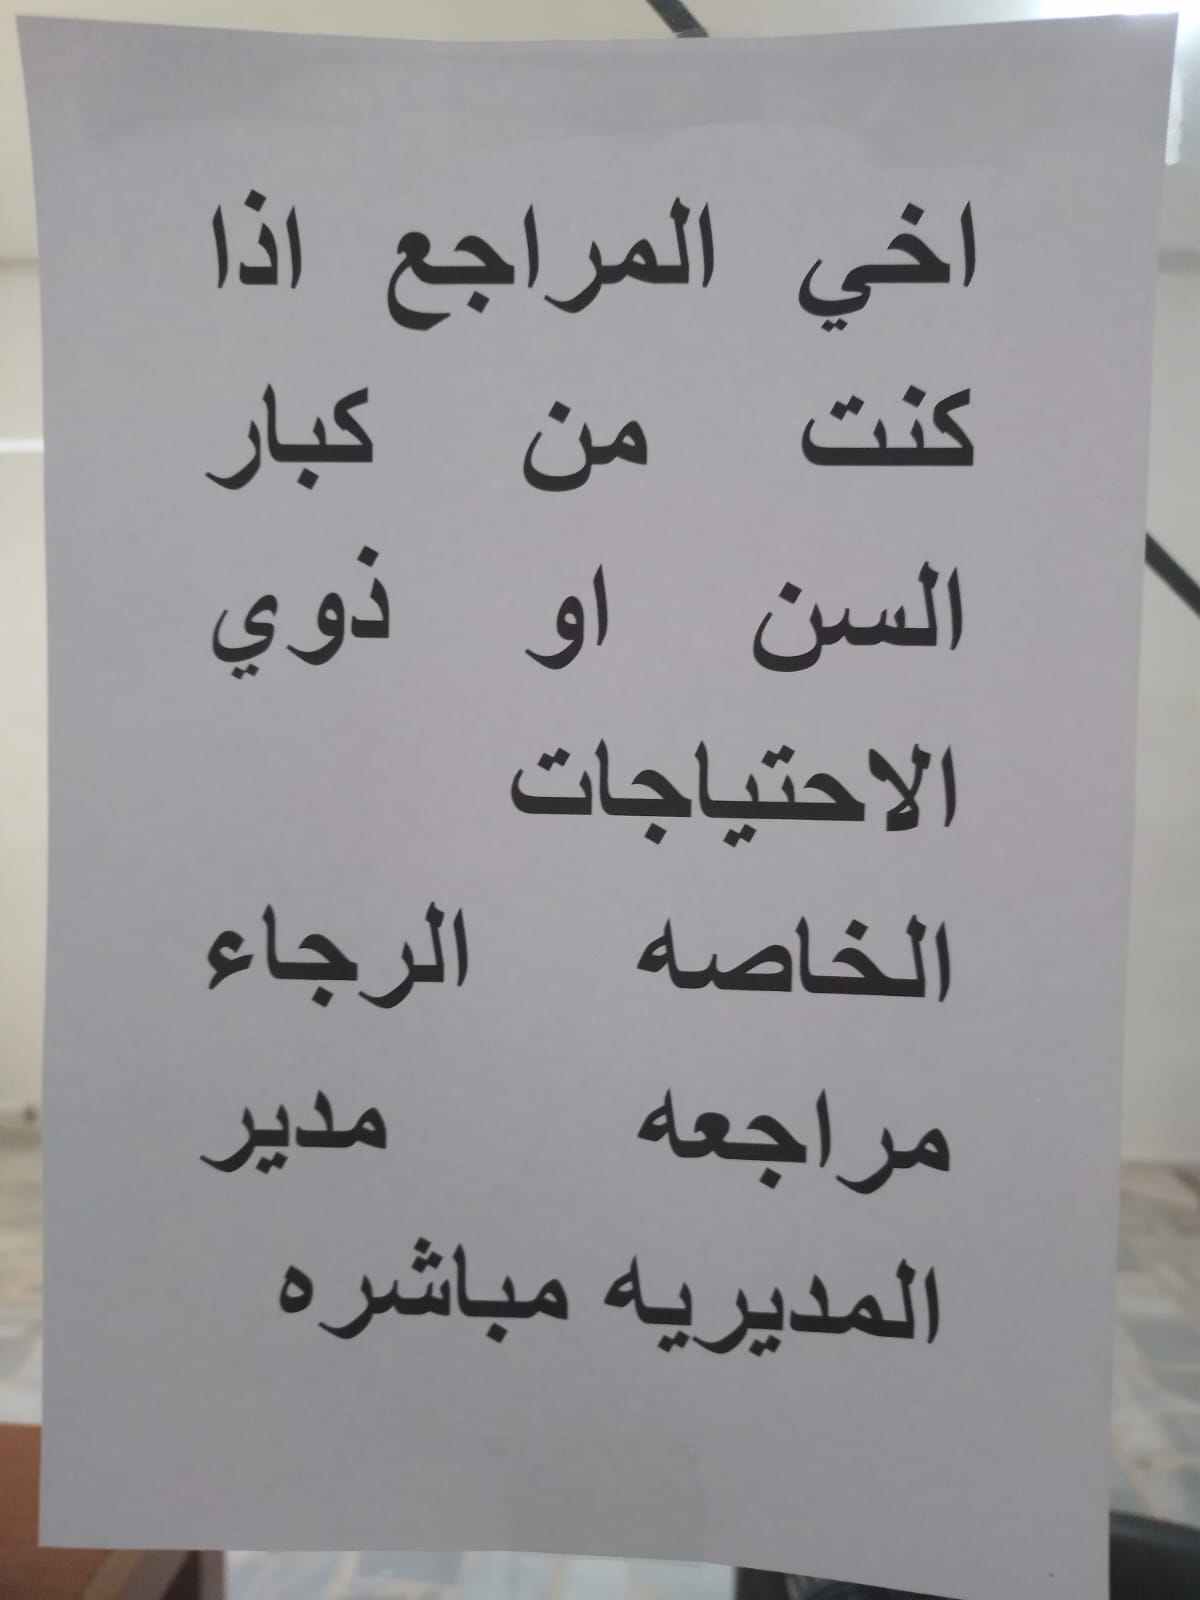 اخي المراجع اذا
كنت من كبار
السن او ذوي
الاحتياجات
الخاصه الرجاء
مراجعه مدير
المديريه مباشره